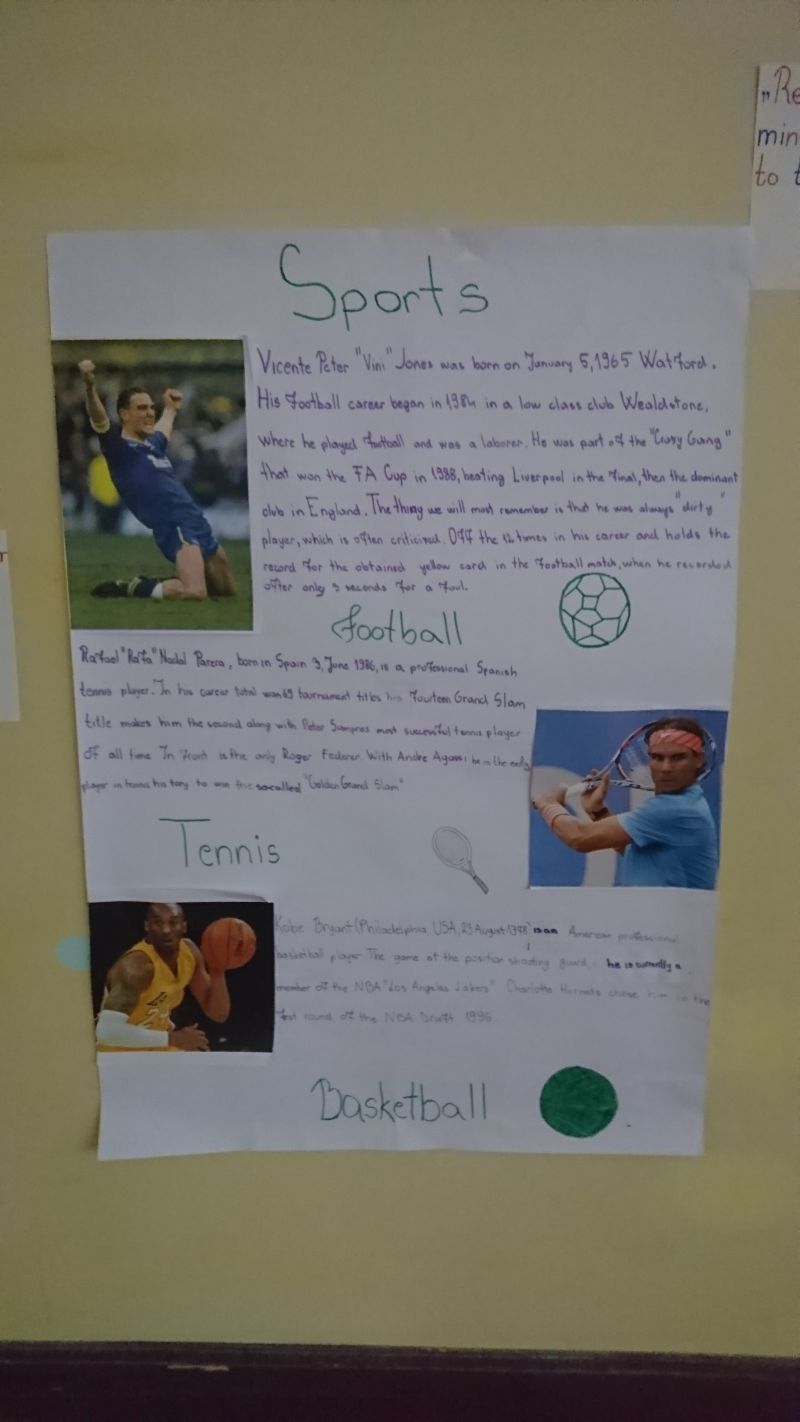 Sports
Vicente Peter "Vini" Jones was born on January 5, 1965 Watford.
His football career began in 1984 in a low class club Wealdstone,
where he played football and was a laborer. He was part of the "Crazy Gang"
that won the FA Cup in 1988, beating Liverpool in the final, then the dominant
club in England. The thing we will most remember is that he was always "dirty"
player, which is often criticized. Off the 12 times in his career and holds the
record for the obtained yellow card in the football match, when he recorded
after only 3 seconds for a foul.
Football
Rafael "Rafa" Nadal Parera, born in Spain 3, June 1986, is a professional Spanish
tennis player. In his career total won 69 tournament titles his fourteen Grand Slam
title makes him the second along with Peter Sampras most successful tennis player
of all time In front is the only Roger Federer. With Andre Agassi he is the only
player in tennis history to win the socalled "Golden Grand Slam"
Tennis
Kobe Bryant (Philadelphia, USA, 23 August 1978) is an American professional
basketball player The game at the position shooting guard, he is currently a
member of the NBA "Los Angeles Lakers" Charlotte Hornets chose him in the
first round of the NBA Draft 1996.
Basketball
"Re
min
to t